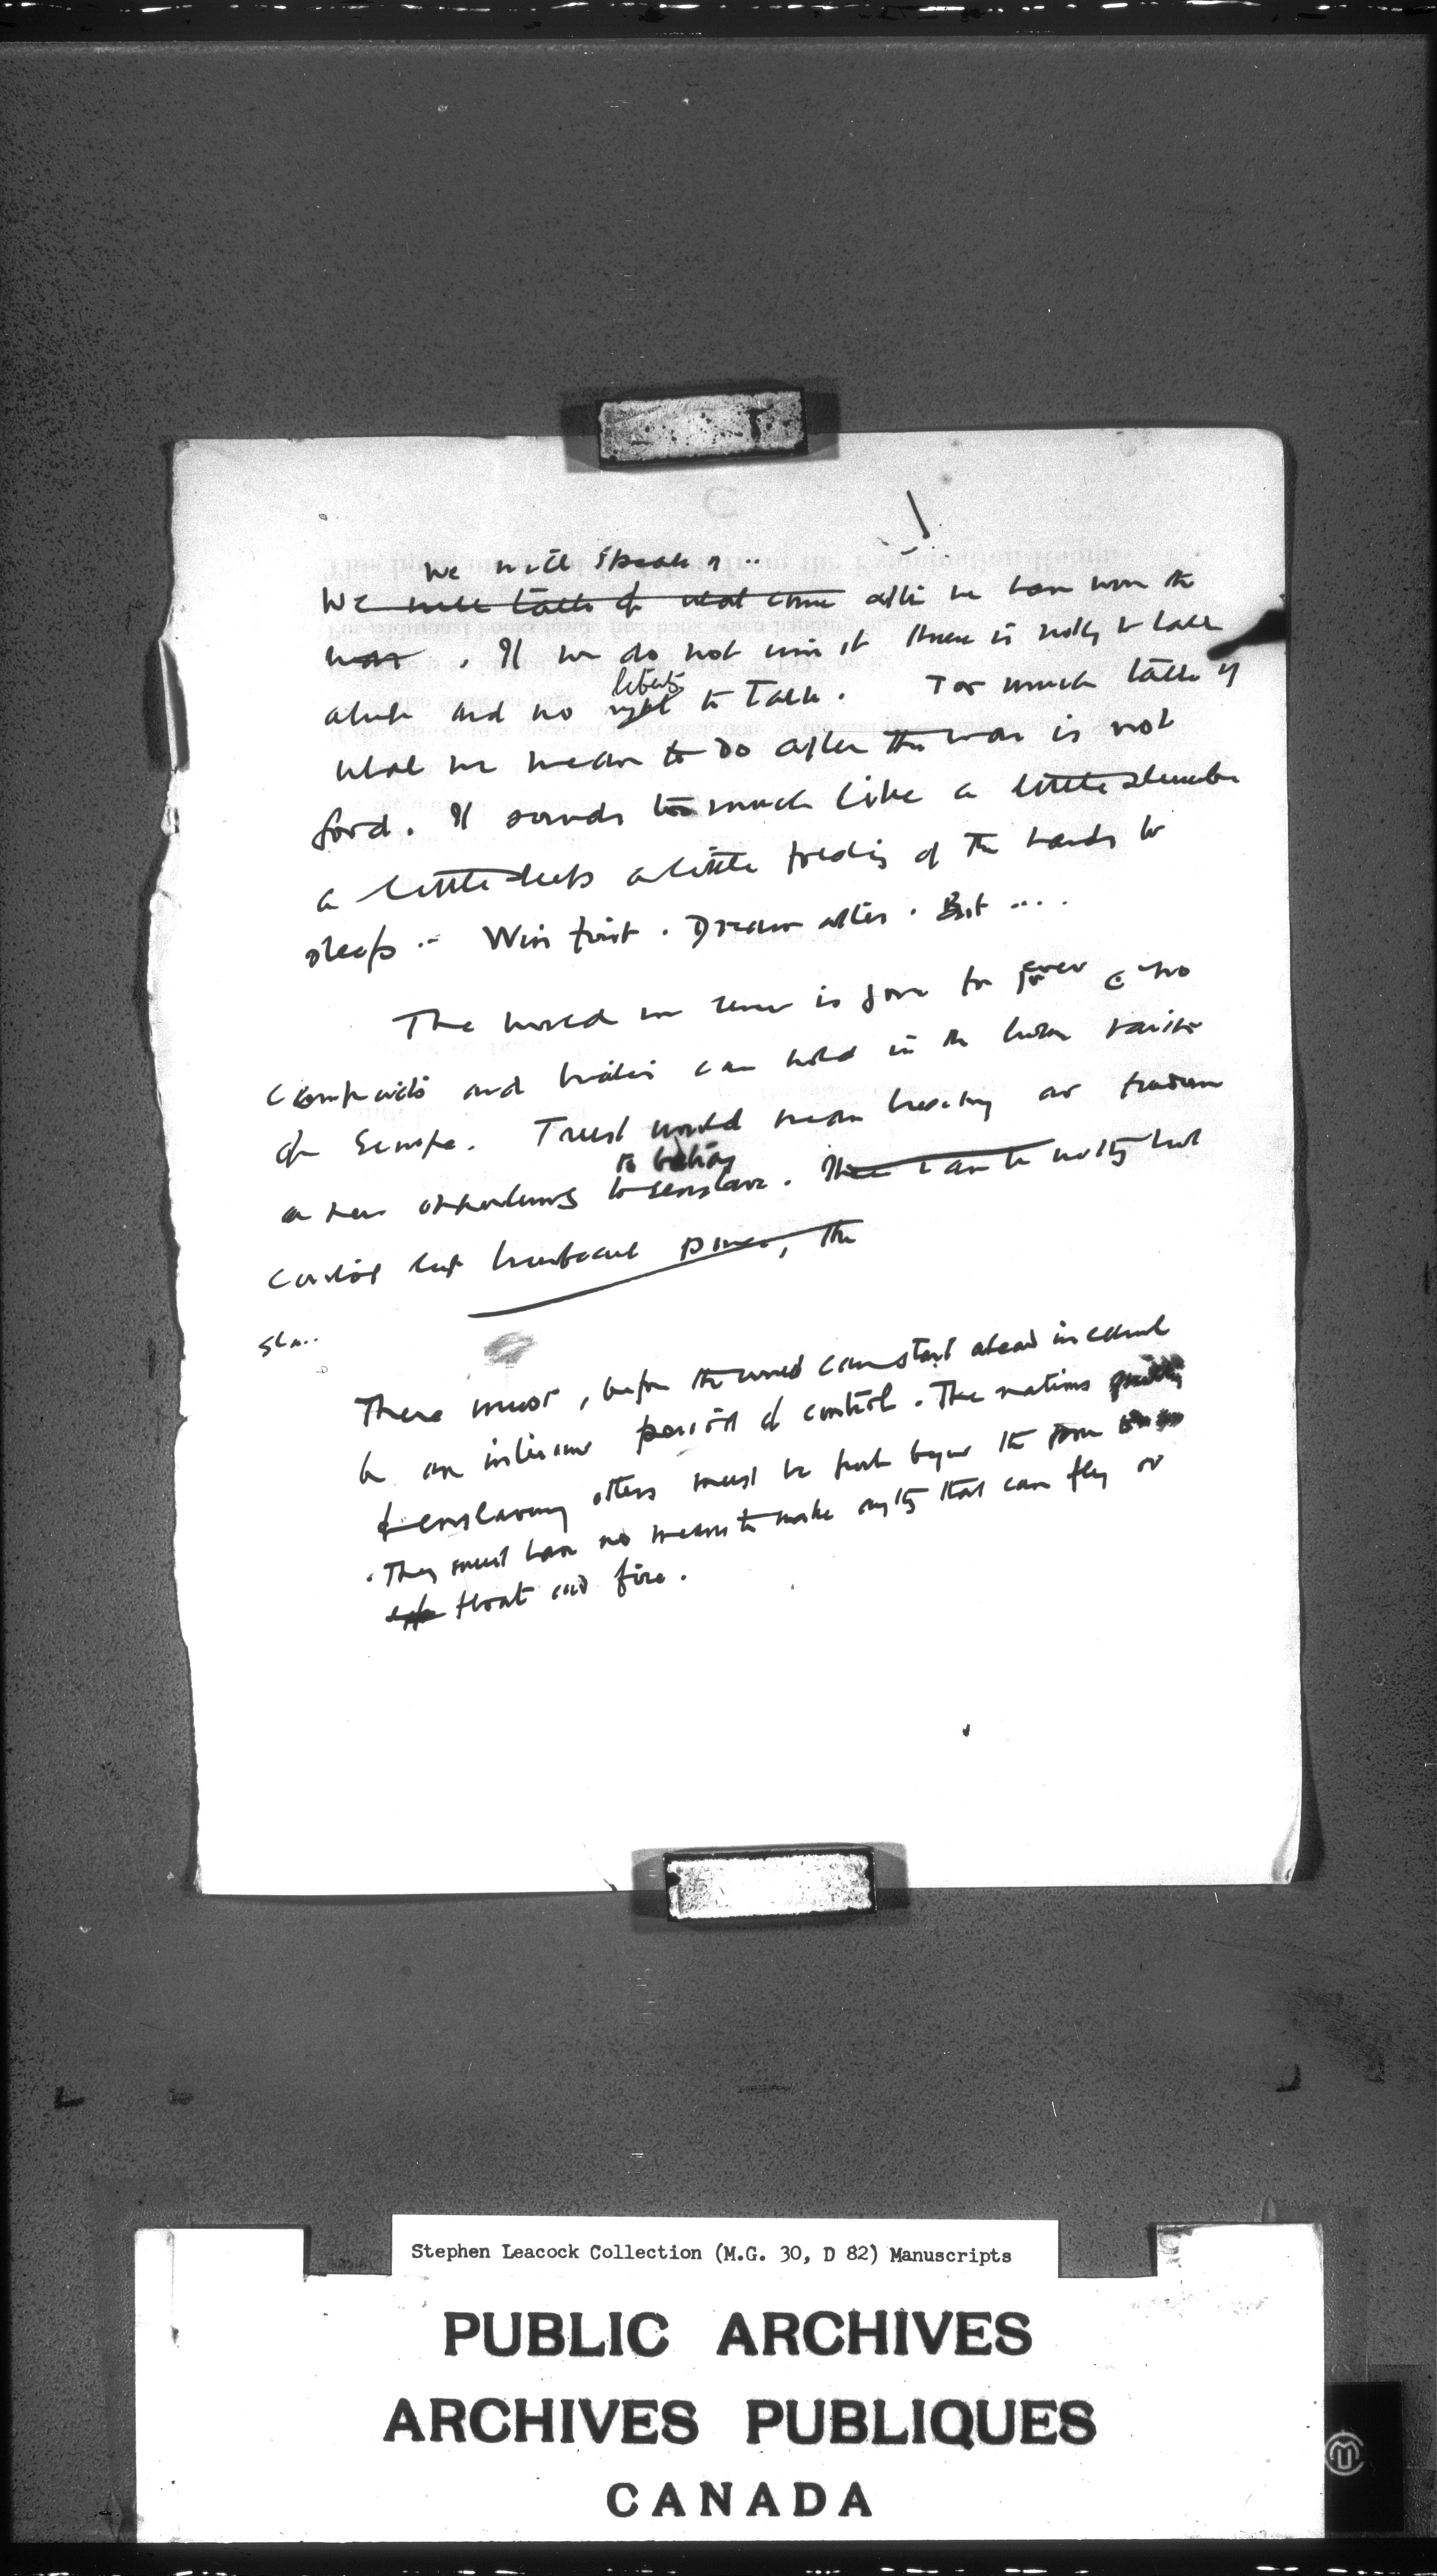 We will speak of ...
We will talk of what come after we have won the
war. If we do not win it there is nothing to talk
about and no right liberty to talk. Too much talk of
what we mean to do after the war is not
good. It sounds too much like a little slumber
a little sleep a little folding of the hands to
sleep .. Win first. Dream after. But ....
The world we knew is gone for ever no
compacts and treaties can hold in the
of Europe. Trust would mean treachery
a new to betray to enslave. There can be nothing but
control but power, the
Sla..
There must, before the world can start ahead in
be an interim period of control. The nations guilty
of enslaving others must be put beyond the power
. They must have no means to make anything that can fly or
float and fire.
Stephen Leacock Collection (M.G. 30, D 82) Manuscripts
PUBLIC ARCHIVES
ARCHIVES PUBLIQUES
CANADA